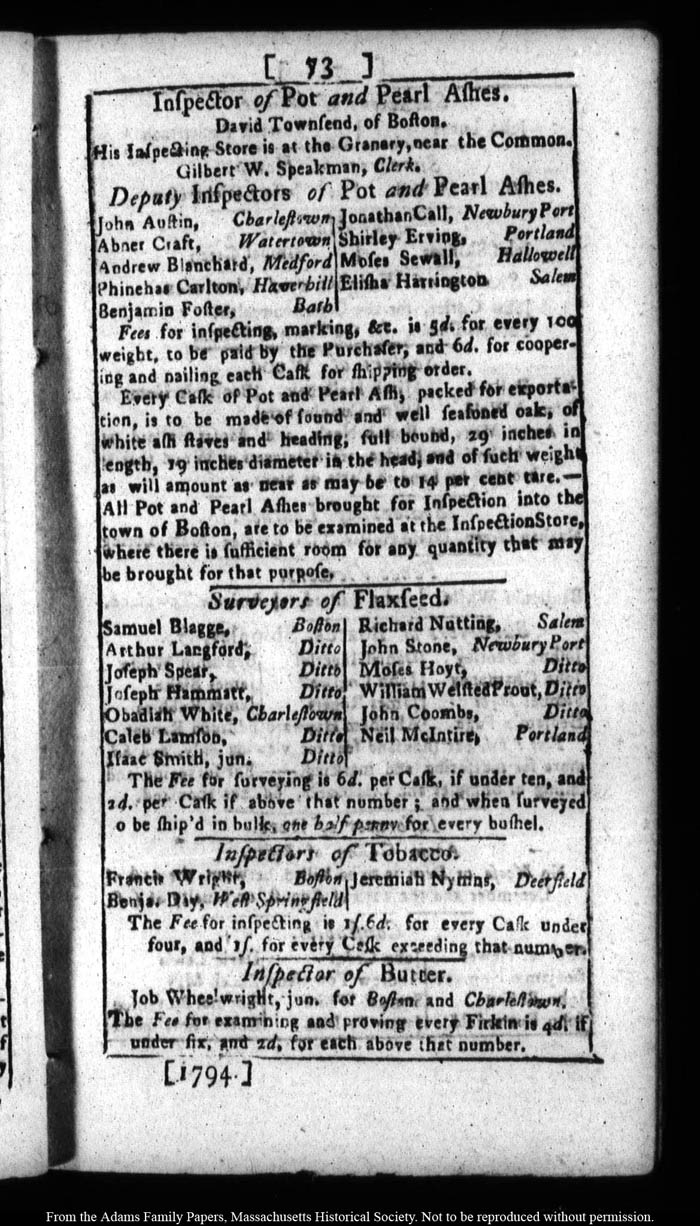 [ 73 ]
Inſpector of Pot and Pearl Aſhes.
David Townſend, of Boſton.
His Inſpecting Store is at the Granary, near the Common.
Gilbert W. Speakman, Clerk.
Deputy Inſpectors of Pot and Pearl Aſhes.
John Auſtin, Charleſtown
Abner Craft, Watertown
Andrew Blanchard, Medford
Phinehas Carlton, Haverhill
Benjamin Foſter, Bath
Jonathan Call, Newbury Port
Shirley Erving, Portland
Moſes Sewall, Hallowell
Eliſha Harrington Salem
Fees for inſpecting, marking, &c. is 5d. for every 100
weight, to be paid by the Purchaſer, and 6d. for cooper-
ing and nailing each Caſk for ſhipping order.
Every Caſk of Pot and Pearl Aſh, packed for exporta-
tion, is to be made of ſound and well ſeaſoned oak, of
white aſh ſtaves and heading, full bound, 29 inches in
ength, 19 inches diameter in the head, and of ſuch weight
as will amount as near as may be to 14 per cent tare.—
All Pot and Pearl Aſhes brought for Inſpection into the
town of Boſton, are to be examined at the Inſpection Store,
where there is ſufficient room for any quantity that may
be brought for that purpoſe.
Surveyors of Flaxſeed.
Samuel Blagge, Boſton
Arthur Langford, Ditto
Joſeph Spear, Ditto
Joſeph Hammatt, Ditto
Obadiah White, Charleſtown
Caleb Lamſon, Ditto
Iſaac Smith, jun. Ditto
Richard Nutting, Salem
John Stone, Newbury Port
Moſes Hoyt, Ditto
William Welſted Prout, Ditto
John Coombs, Ditto
Neil McIntire, Portland
The Fee for ſurveying is 6d. per Caſk, if under ten, and
2d. per Caſk if above that number; and when ſurveyed
o be ſhip'd in bulk, one half penny for every buſhel.
Inſpectors of Tobacco.
Francis Wright, Boſton
Benja. Day, Weſt Springfield
Jeremiah Nymns, Deerfield
The Fee for inſpecting is 1ſ.6d. for every Caſk under
four, and 1ſ. for every Caſk exceeding that number.
Inſpector of Butter.
Job Wheelwright, jun. for Boſton and Charleſtown.
The Fee for examining and proving every Firkin is 4d. if
under ſix, and 2d. for each above that number.
[1794.]
From the Adams Family Papers, Massachusetts Historical Society. Not to be reproduced without permission.